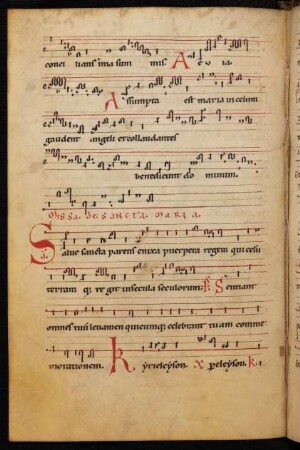 A E V IA
A ssumpta est maria in celum
gaudent angeli et collaudantes
benedicunt dominum.
MISSA. DE SANCTA. MARIA.
Salue sancta parens enixa puerpera regem qui celu
terram q regit in secula seculorum. Ps Sentiant
omnes tuum leuamen quicumq celebrant tuam comme
morationem. Kyrieleyson. X peleyson. K. i